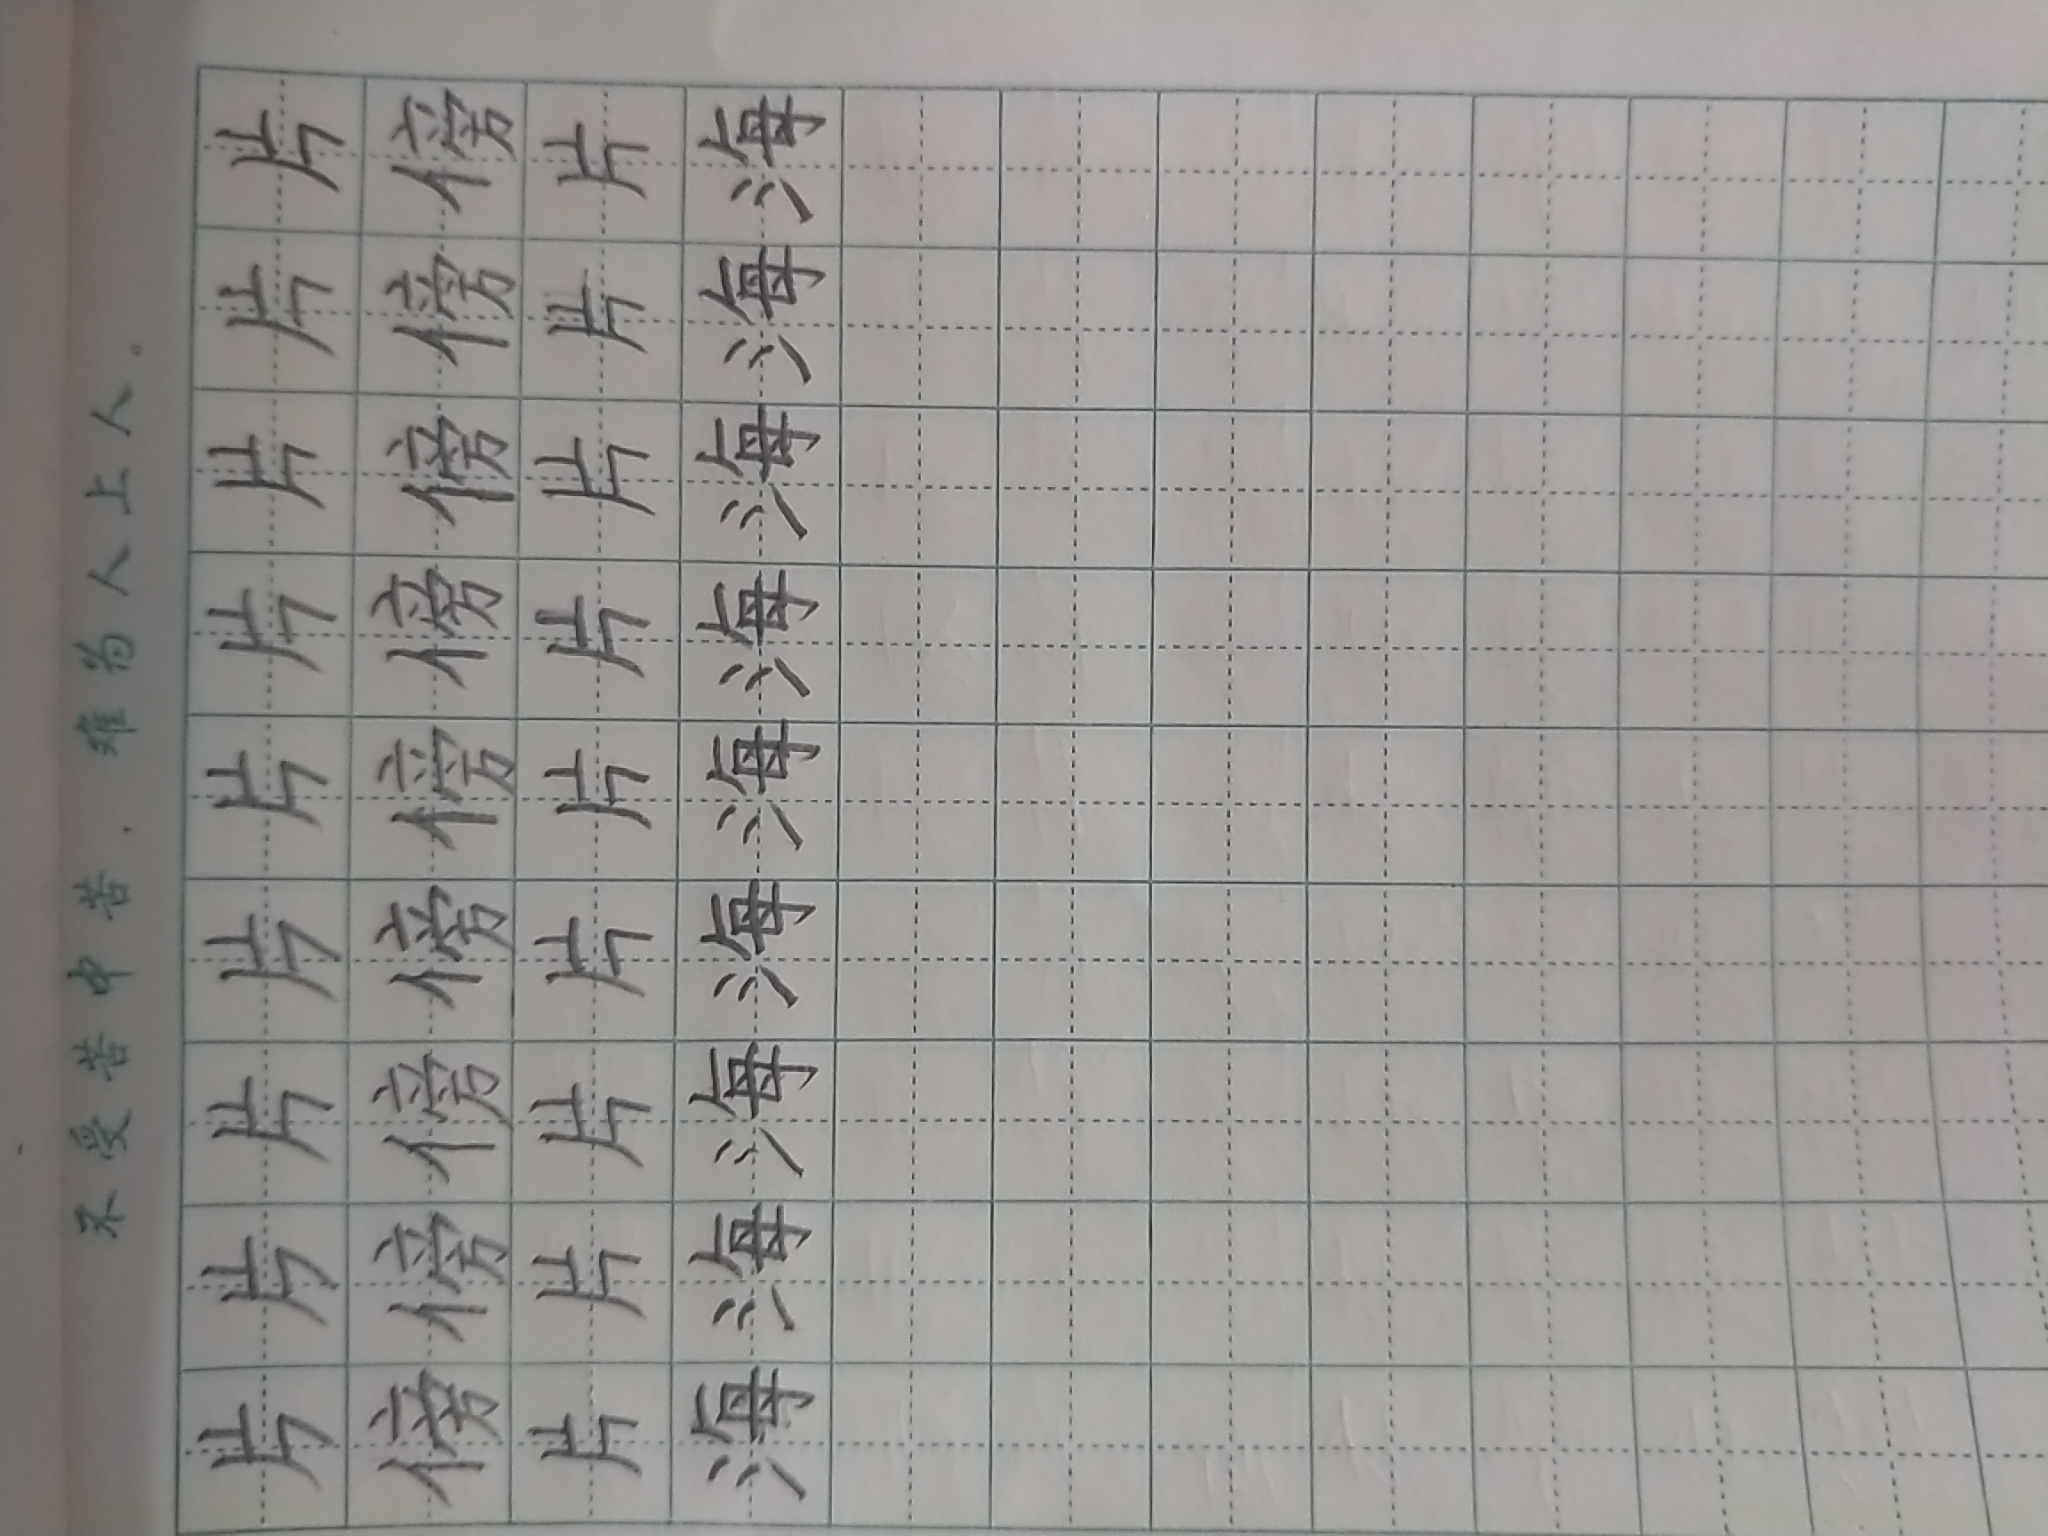 不受苦中苦，难为人上人。
片片片片片片片片片
傍傍傍傍傍傍傍傍傍
片片片片片片片片片
海海海海海海海海海